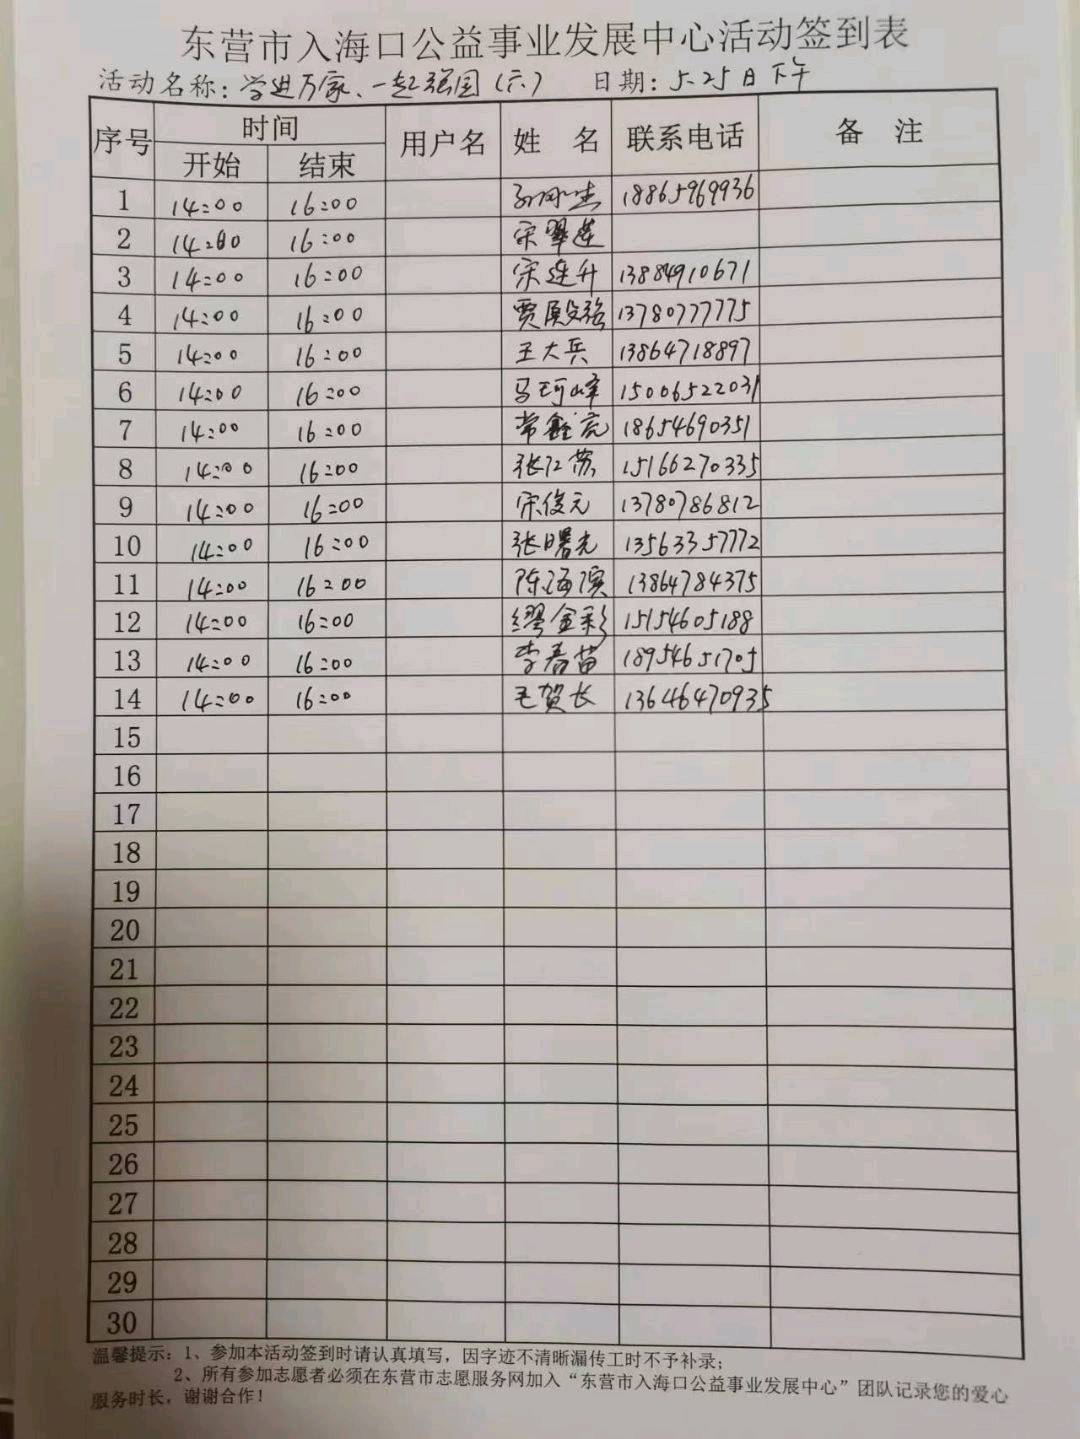 东营市入海口公益事业发展中心活动签到表
活动名称：学进万家、一起强国（六） 日期：5.25日下午
序号 时间 用户名 姓 名 联系电话 备 注
开始 结束
1 14:00 16:00 18865969936
2 14:00 16:00 宋翠莲
3 14:00 16:00 宋连升 13884910671
4 14:00 16:00 贾殿强 13780777775
5 14:00 16:00 王大兵 13864718897
6 14:00 16:00 马珂峰 15006522031
7 14:00 16:00 常鑫亮 18654690351
8 14:00 16:00 张江苏 15166270335
9 14:00 16:00 宋俊元 13780786812
10 14:00 16:00 张曙光 13563357772
11 14:00 16:00 陈海滨 13864784375
12 14:00 16:00 缪金彩 15154605188
13 14:00 16:00 李春苗 18954651705
14 14:00 16:00 毛贺长 13646470935
15
16
17
18
19
20
21
22
23
24
25
26
27
28
29
30
温馨提示：1、参加本活动签到时请认真填写，因字迹不清晰漏传工时不予补录；
2、所有参加志愿者必须在东营市志愿服务网加入“东营市入海口公益事业发展中心”团队记录您的爱心
服务时长，谢谢合作！